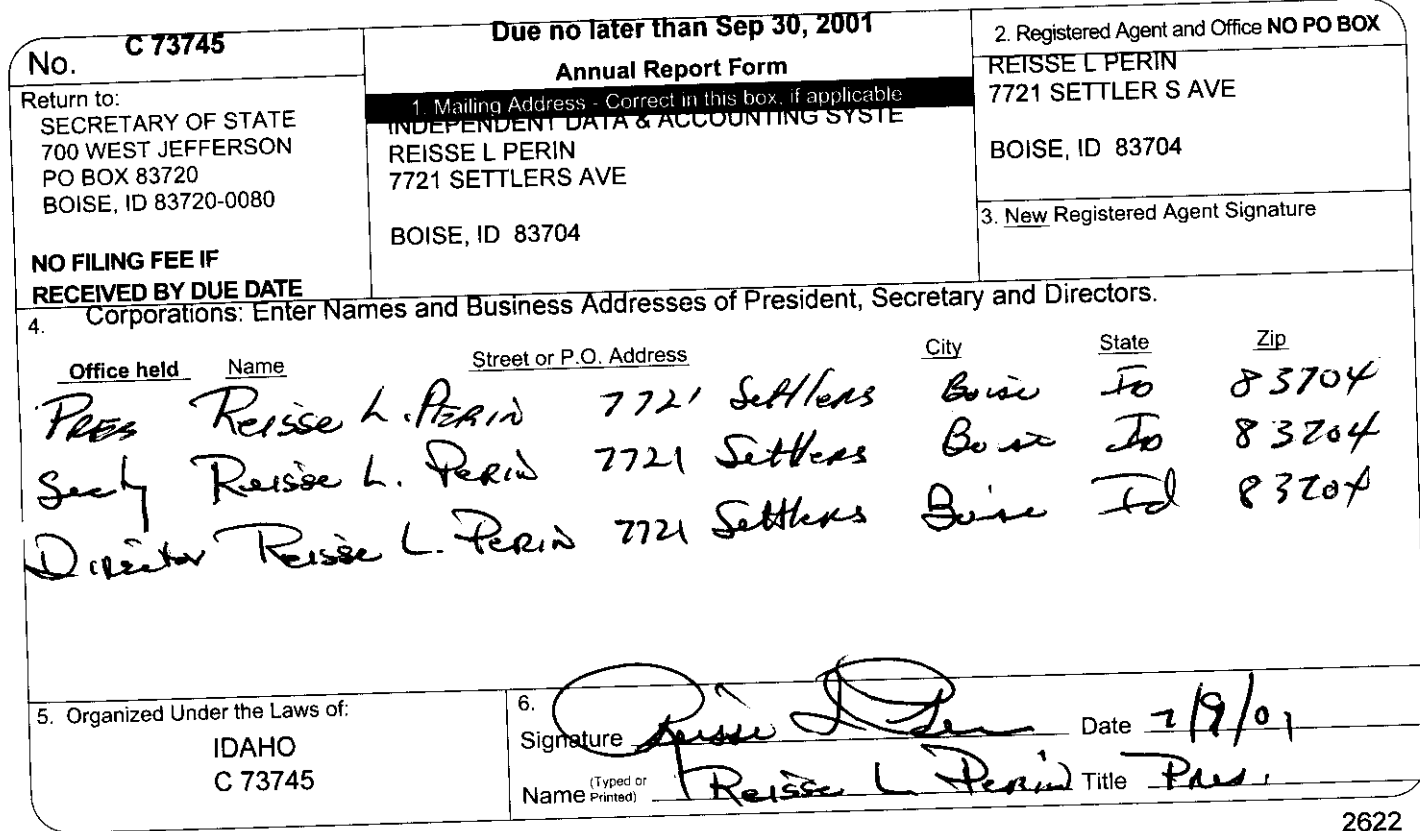 No. C 73745
Due no later than Sep 30, 2001
Annual Report Form
Return to:
SECRETARY OF STATE
700 WEST JEFFERSON
PO BOX 83720
BOISE, ID 83720-0080
NO FILING FEE IF
RECEIVED BY DUE DATE
1. Mailing Address - Correct in this box, if applicable
INDEPENDENT DATA & ACCOUNTING SYSTE
REISSE L PERIN
7721 SETTLERS AVE
BOISE, ID 83704
2. Registered Agent and Office NO PO BOX
REISSE L PERIN
7721 SETTLER S AVE
BOISE, ID 83704
3. New Registered Agent Signature
4. Corporations: Enter Names and Business Addresses of President, Secretary and Directors.
Office held Name Street or P.O. Address City State Zip
Pres Reisse L. Perin 7721 Settlers Boise ID 83704
Secty Reisse L. Perin 7721 Settlers Boise ID 83704
Director Reisse L. Perin 7721 Settlers Boise Id 83704
5. Organized Under the Laws of:
IDAHO
C 73745
6.
Signature Reisse L Perin Date 7/9/01
Name (Typed or Printed) Reisse L Perin Title Pres.
2622